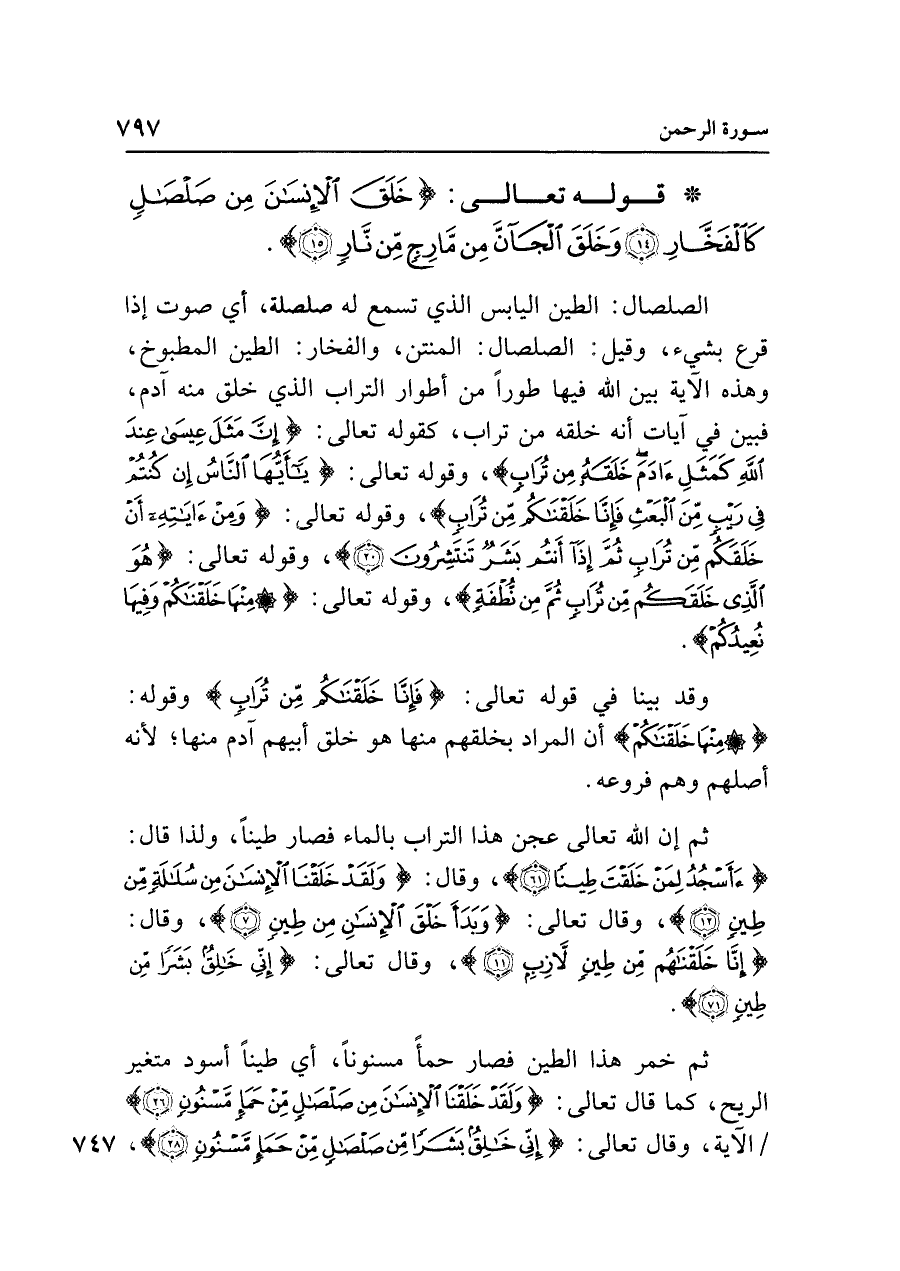 سورة الرحمن ٧٩٧
* قوله تعالى: ﴿خَلَقَ ٱلْإِنسَٰنَ مِن صَلْصَٰلٍ
كَٱلْفَخَّارِ ١٤ وَخَلَقَ ٱلْجَآنَّ مِن مَّارِجٍ مِّن نَّارٍ ١٥﴾.
الصلصال: الطين اليابس الذي تسمع له صلصلة، أي صوت إذا
قرع بشيء، وقيل: الصلصال: المنتن، والفخار: الطين المطبوخ،
وهذه الآية بين الله فيها طوراً من أطوار التراب الذي خلق منه آدم،
فبين في آيات أنه خلقه من تراب، كقوله تعالى: ﴿إِنَّ مَثَلَ عِيسَىٰ عِندَ
ٱللَّهِ كَمَثَلِ ءَادَمَ ۖ خَلَقَهُۥ مِن تُرَابٍ﴾، وقوله تعالى: ﴿يَٰٓأَيُّهَا ٱلنَّاسُ إِن كُنتُمْ
فِى رَيْبٍ مِّنَ ٱلْبَعْثِ فَإِنَّا خَلَقْنَٰكُم مِّن تُرَابٍ﴾، وقوله تعالى: ﴿وَمِنْ ءَايَٰتِهِۦٓ أَنْ
خَلَقَكُم مِّن تُرَابٍ ثُمَّ إِذَآ أَنتُم بَشَرٌ تَنتَشِرُونَ ٢٠﴾، وقوله تعالى: ﴿هُوَ
ٱلَّذِى خَلَقَكُم مِّن تُرَابٍ ثُمَّ مِن نُّطْفَةٍ﴾، وقوله تعالى: ﴿۞ مِنْهَا خَلَقْنَٰكُمْ وَفِيهَا
نُعِيدُكُمْ﴾.
وقد بينا في قوله تعالى: ﴿فَإِنَّا خَلَقْنَٰكُم مِّن تُرَابٍ﴾ وقوله:
﴿۞ مِنْهَا خَلَقْنَٰكُمْ﴾ أن المراد بخلقهم منها هو خلق أبيهم آدم منها؛ لأنه
أصلهم وهم فروعه.
ثم إن الله تعالى عجن هذا التراب بالماء فصار طيناً، ولذا قال:
﴿ءَأَسْجُدُ لِمَنْ خَلَقْتَ طِينًا ٦١﴾، وقال: ﴿وَلَقَدْ خَلَقْنَا ٱلْإِنسَٰنَ مِن سُلَٰلَةٍ مِّن
طِينٍ ١٢﴾، وقال تعالى: ﴿وَبَدَأَ خَلْقَ ٱلْإِنسَٰنِ مِن طِينٍ ٧﴾، وقال:
﴿إِنَّا خَلَقْنَٰهُم مِّن طِينٍ لَّازِبٍۭ ١١﴾، وقال تعالى: ﴿إِنِّى خَٰلِقٌۢ بَشَرًا مِّن
طِينٍ ٧١﴾.
ثم خمر هذا الطين فصار حمأً مسنوناً، أي طيناً أسود متغير
الريح، كما قال تعالى: ﴿وَلَقَدْ خَلَقْنَا ٱلْإِنسَٰنَ مِن صَلْصَٰلٍ مِّنْ حَمَإٍ مَّسْنُونٍ ٢٦﴾
/ الآية، وقال تعالى: ﴿إِنِّى خَٰلِقٌۢ بَشَرًا مِّن صَلْصَٰلٍ مِّنْ حَمَإٍ مَّسْنُونٍ ٢٨﴾، ٧٤٧